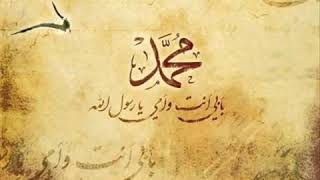 محمد
بأبي أنت وأمي يا رسول الله
بأبي أنت وأمي